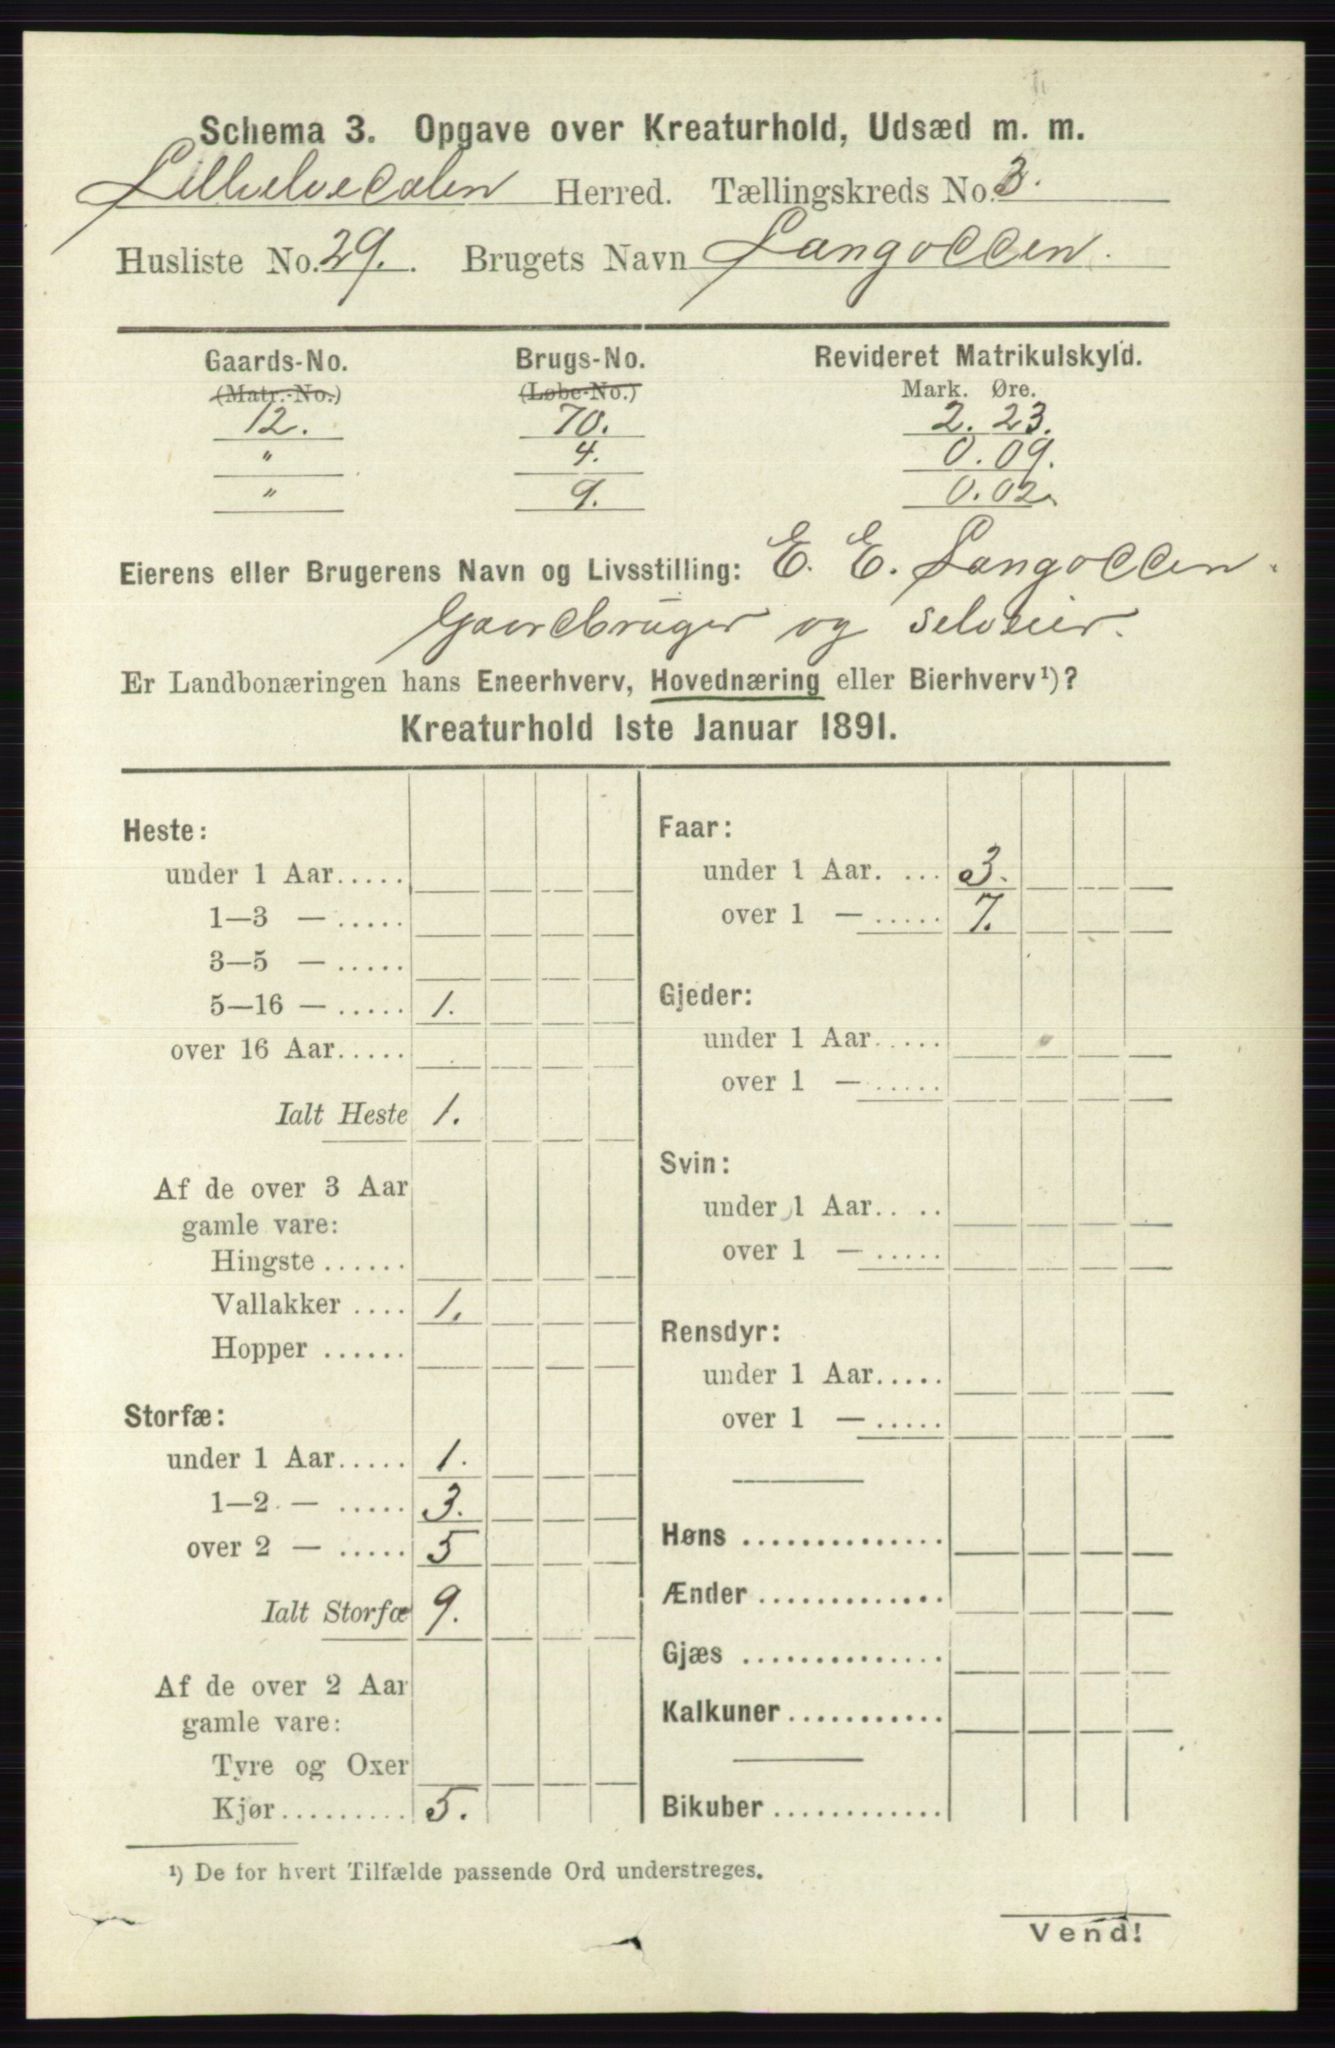 Schema 3. Opgave over Kreaturhold, Udsæd m. m.
Lilleelvedalen Herred. Tællingskreds No. 3.
Husliste No. 29. Brugets Navn Langodden.
Gaards-No. Brugs-No. Revideret Matrikulskyld.
(Matr.-No.) (Løbe-No.) Mark. Øre.
12. 70. 2. 23.
" 4. 0. 09.
" 9. 0. 02.
Eierens eller Brugerens Navn og Livsstilling: E. E. Langodden.
Gaardbruger og selveier.
Er Landbonæringen hans Eneerhverv, Hovednæring eller Bierhverv¹)?
Kreaturhold 1ste Januar 1891.
Heste:
under 1 Aar.....
1—3 — .....
3—5 — .....
5—16 — ..... 1.
over 16 Aar.....
Ialt Heste 1.
Af de over 3 Aar
gamle vare:
Hingste ......
Vallakker .... 1.
Hopper ......
Storfæ:
under 1 Aar..... 1.
1—2 — ..... 3.
over 2 — ..... 5
Ialt Storfæ 9.
Af de over 2 Aar
gamle vare:
Tyre og Oxer
Kjør......... 5.
Faar:
under 1 Aar. ... 3.
over 1 — ..... 7.
Gjeder:
under 1 Aar.....
over 1 — .....
Svin:
under 1 Aar.. ..
over 1 — .....
Rensdyr:
under 1 Aar.....
over 1 — .....
Høns ..............
Ænder .............
Gjæs ..............
Kalkuner ...........
Bikuber .............
¹) De for hvert Tilfælde passende Ord understreges.
Vend!